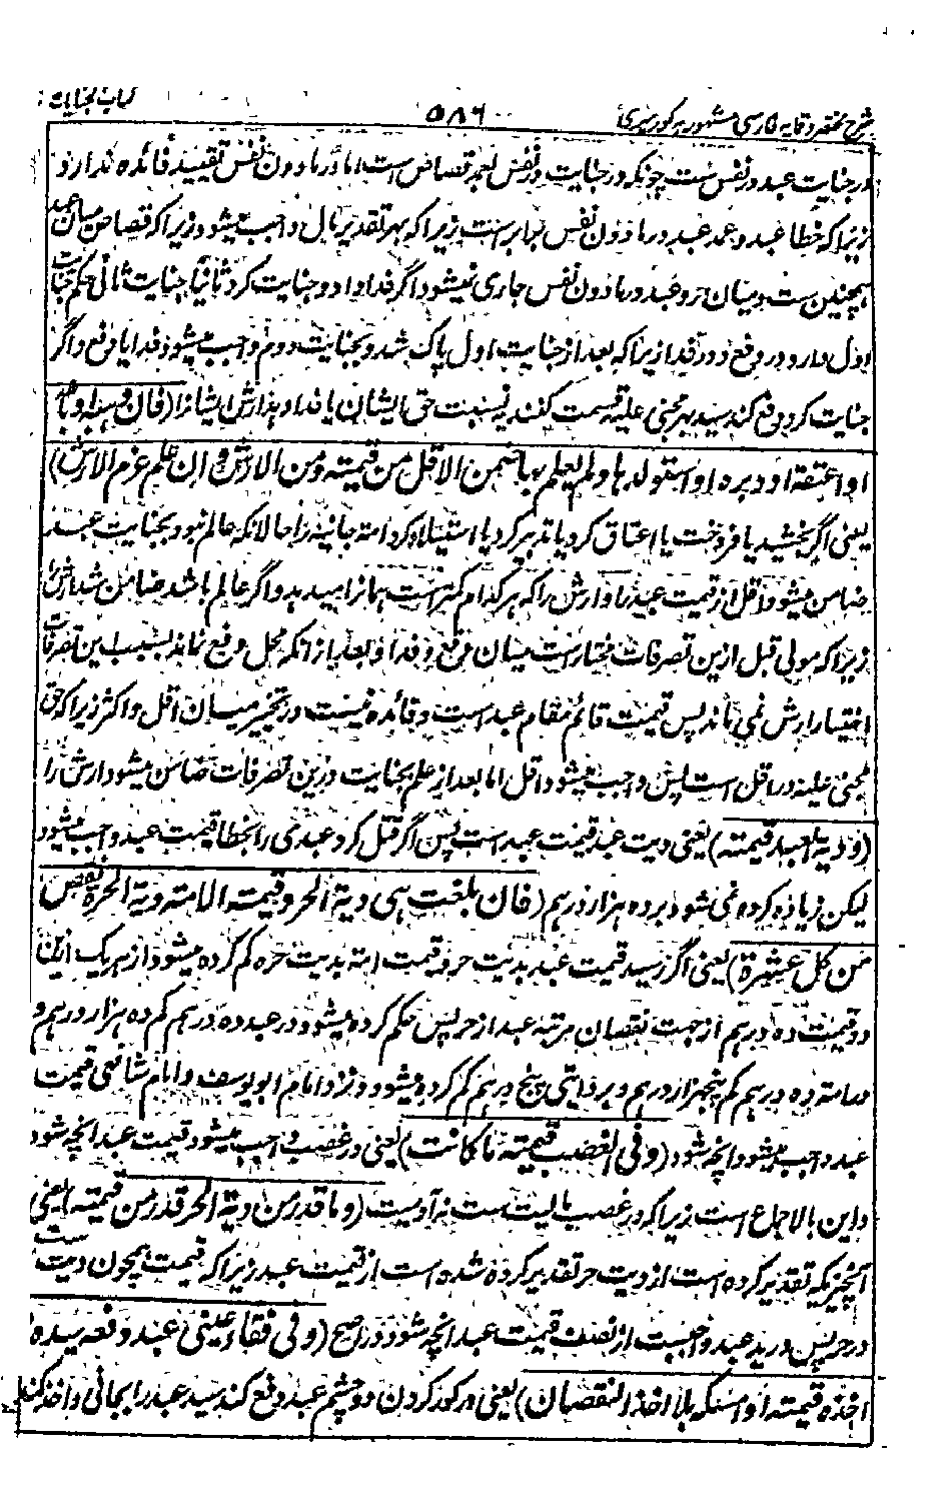 شرح مختصر وقایه فارسی مشهور به کور میری ۵۸۶ کتاب الجنایات
در جنایت عبد در نفس ست چونکه در جنایت در نفس لعبد قصاص است اما در ما دون نفس تقیید فائده ندارد
زیرا که خطا عبد و عمد عبد در ما دون نفس برابر ست زیرا که بهر تقدیر مال واجب میشود زیرا که قصاص میان عبد
همچنین ست و میان حر و عبد در ما دون نفس جاری نمیشود اگر فدا داد و جنایت کرد ثانیاً جنایت ثانی حکم جنایت
اول دارد در دفع و در فدا زیرا که بعد از جنایت اول پاک شد و بجنایت دوم واجب میشود فدا یا دفع و اگر
جنایت کرد دفع کند سید بهر مجنی علیه قسمت کنند به نسبت حق ایشان یا فدا دهد بارش ایشانرا (فان وهبه او باعه
او اعتقه او دبره او استولدها ولم یعلم بها ضمن الاقل من قیمته ومن الارش وان علم غرم الارش)
یعنی اگر بخشید یا فروخت یا اعتاق کرد یا تدبیر کرد یا استیلاد کرد امته جانیه را حالانکه عالم نبود بجنایت عبد
ضامن میشود اقل از قیمت عبد را و ارش را که هر کدام کمتر ست همانرا میدهد و اگر عالم باشد ضامن شد ارش را
زیرا که مولی قبل ازین تصرفات مختار ست میان دفع و فدا و بعد از آنکه محل دفع نماند بسبب این تصرفات
اختیار ارش نمی ماند پس قیمت قائم مقام عبد است و فائده نیست در تخییر میان اقل و اکثر زیرا که حق
مجنی علیه در اقل است پس واجب میشود اقل اما بعد از علم بجنایت درین تصرفات ضامن میشود ارش را
(ودیة العبد قیمته) یعنی دیت عبد قیمت عبد است پس اگر قتل کرد عبدی را بخطا قیمت عبد واجب میشود
لیکن زیاده کرده نمی شود بر ده هزار درهم (فان بلغت هی دیة الحر وقیمة الامة دیة الحرة نقص
من کل عشرة) یعنی اگر رسید قیمت عبد بدیت حر و قیمت امة بدیت حره کم کرده میشود از هر یک ازین
دو قیمت ده درهم از جهت نقصان مرتبه عبد از حر پس حکم کرده میشود در عبد ده درهم کم ده هزار درهم و
در امته ده درهم کم پنجهزار درهم و بروایتی پنج درهم کم کرده میشود و نزد امام ابو یوسف و امام شافعی قیمت
عبد واجب میشود انچه شود (وفی الغصب قیمته ما کانت) یعنی در غصب واجب میشود قیمت عبد انچه شود
و این بالاجماع است زیرا که در غصب مالیت ست نه آدمیت (وما قدر من دیة الحر قدر من قیمته) یعنی
آنچیزیکه تقدیر کرده است از دیت حر تقدیر کرده شده است از قیمت عبد زیرا که قیمت همچون دیت ست
در حر پس در ید عبد واجبست از نصف قیمت عبد انچه شود در اصح (وفی فقاء عینی عبد دفعه سیده و
اخذه قیمته او امسکه بلا اخذ النقصان) یعنی در کور کردن دو چشم عبد دفع کند سید عبد را بجانی و اخذ کند